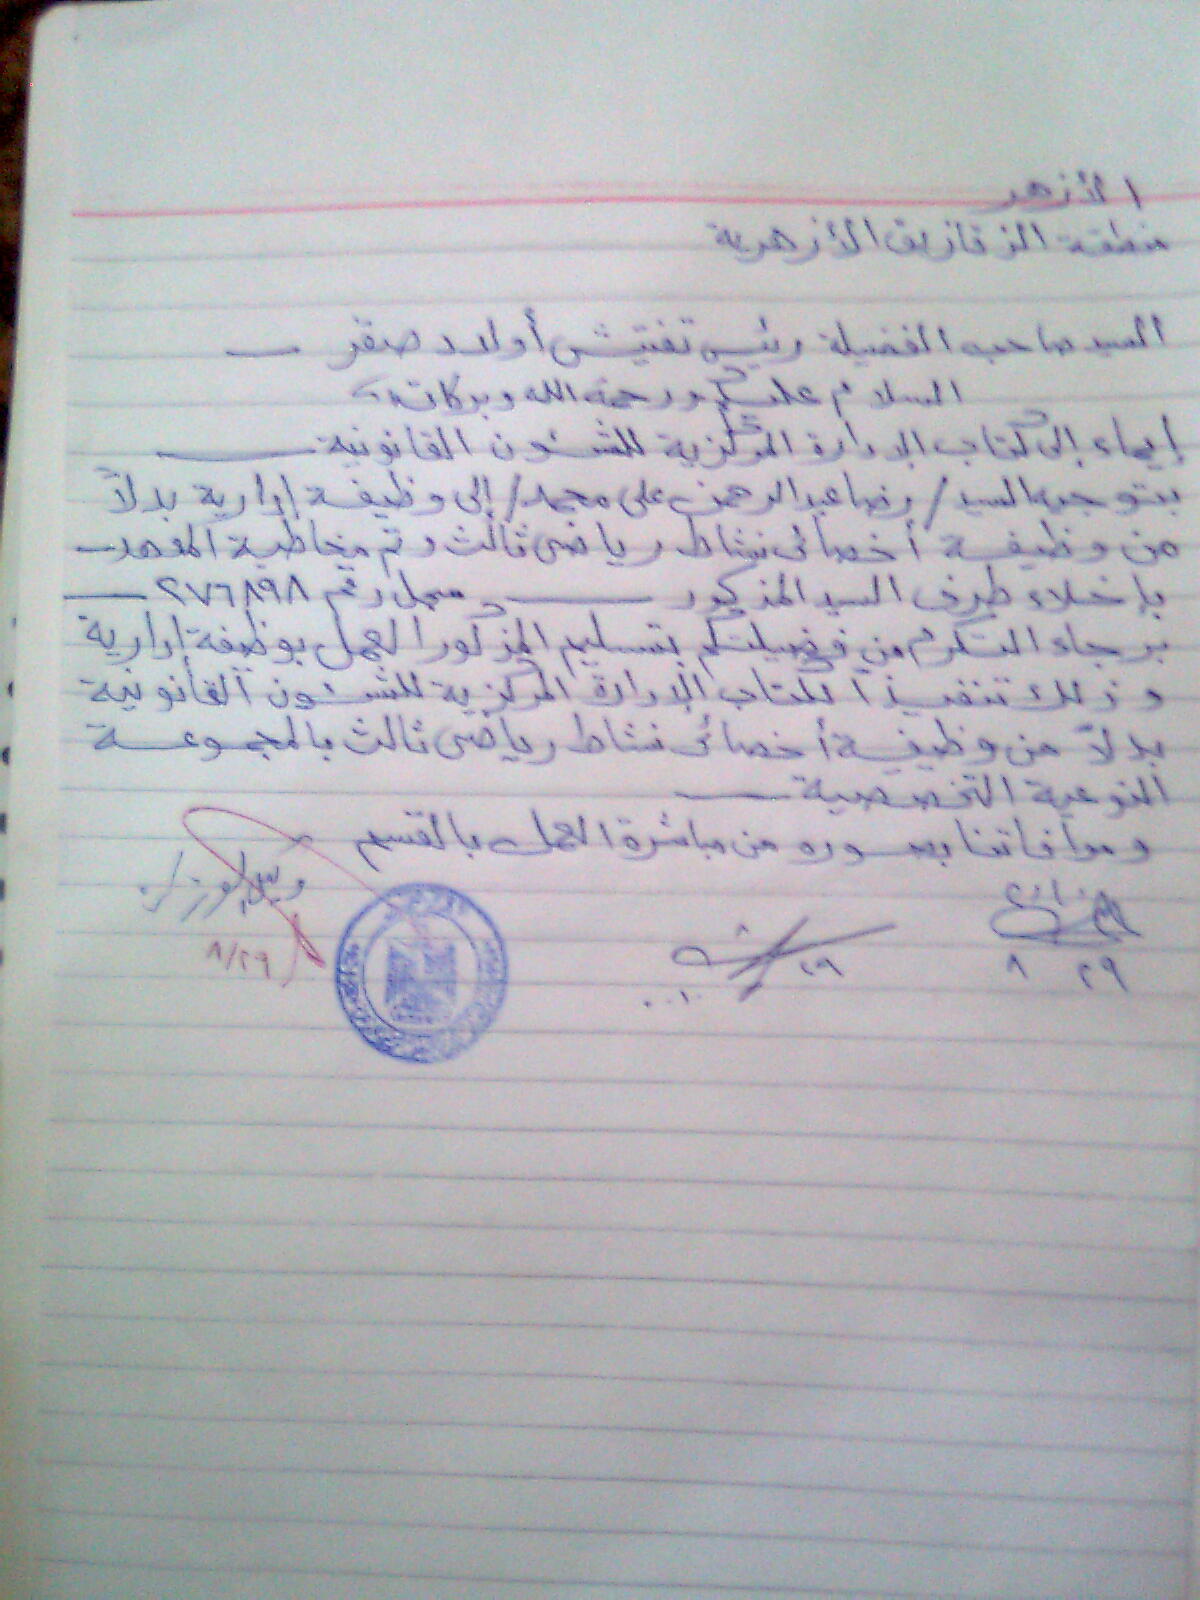 الأزهر
منطقة الزقازيق الأزهرية
السيد صاحب الفضيلة رئيس تفتيش أولاد صقر
السلام عليكم ورحمة الله وبركاته
إيماء إلى كتاب الإدارة المركزية للشئون القانونية
بتوجيه السيد / رضا عبد الرحمن على محمد / إلى وظيفة إدارية بدلاً
من وظيفة أخصائى نشاط رياضى ثالث وتم مخاطبة المعهد
بإخلاء طرف السيد المذكور سجل رقم ٢٧٦٨٩٨
برجاء التكرم من فضيلتكم بتسليم المذكور العمل بوظفة إدارية
وذلك تنفيذاً لكتاب الإدارة المركزية للشئون القانونية
بدلاً من وظيفة أخصائى نشاط رياضى ثالث بالمجموعة
النوعية التخصصية
وموافاتنا بصوره من مباشرة العمل بالقسم
٨/٢٩
٢٩ ٨
٢٩ ٨